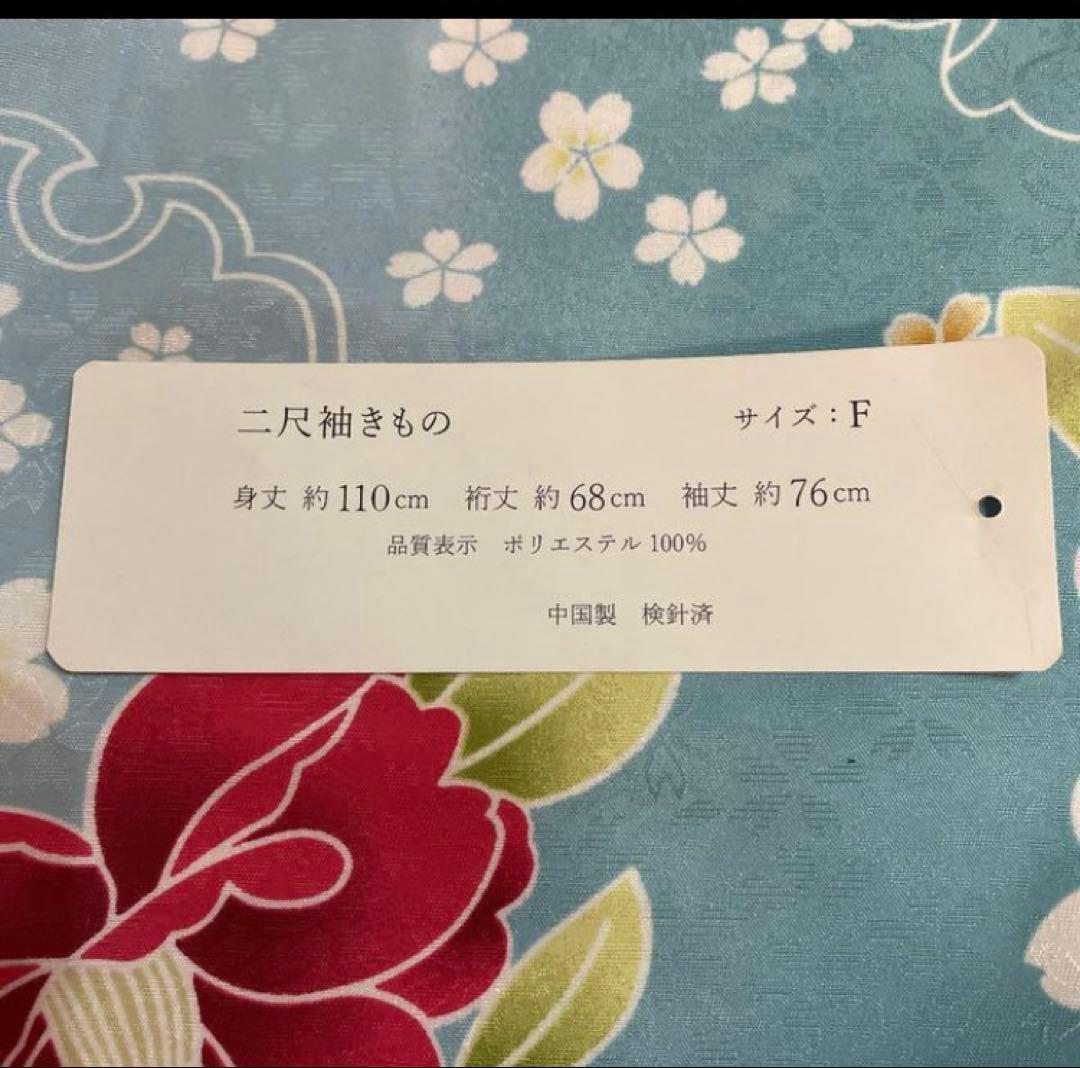 二尺袖きもの サイズ：F
身丈 約110cm 裄丈 約68cm 袖丈 約76cm
品質表示 ポリエステル 100%
中国製 検針済